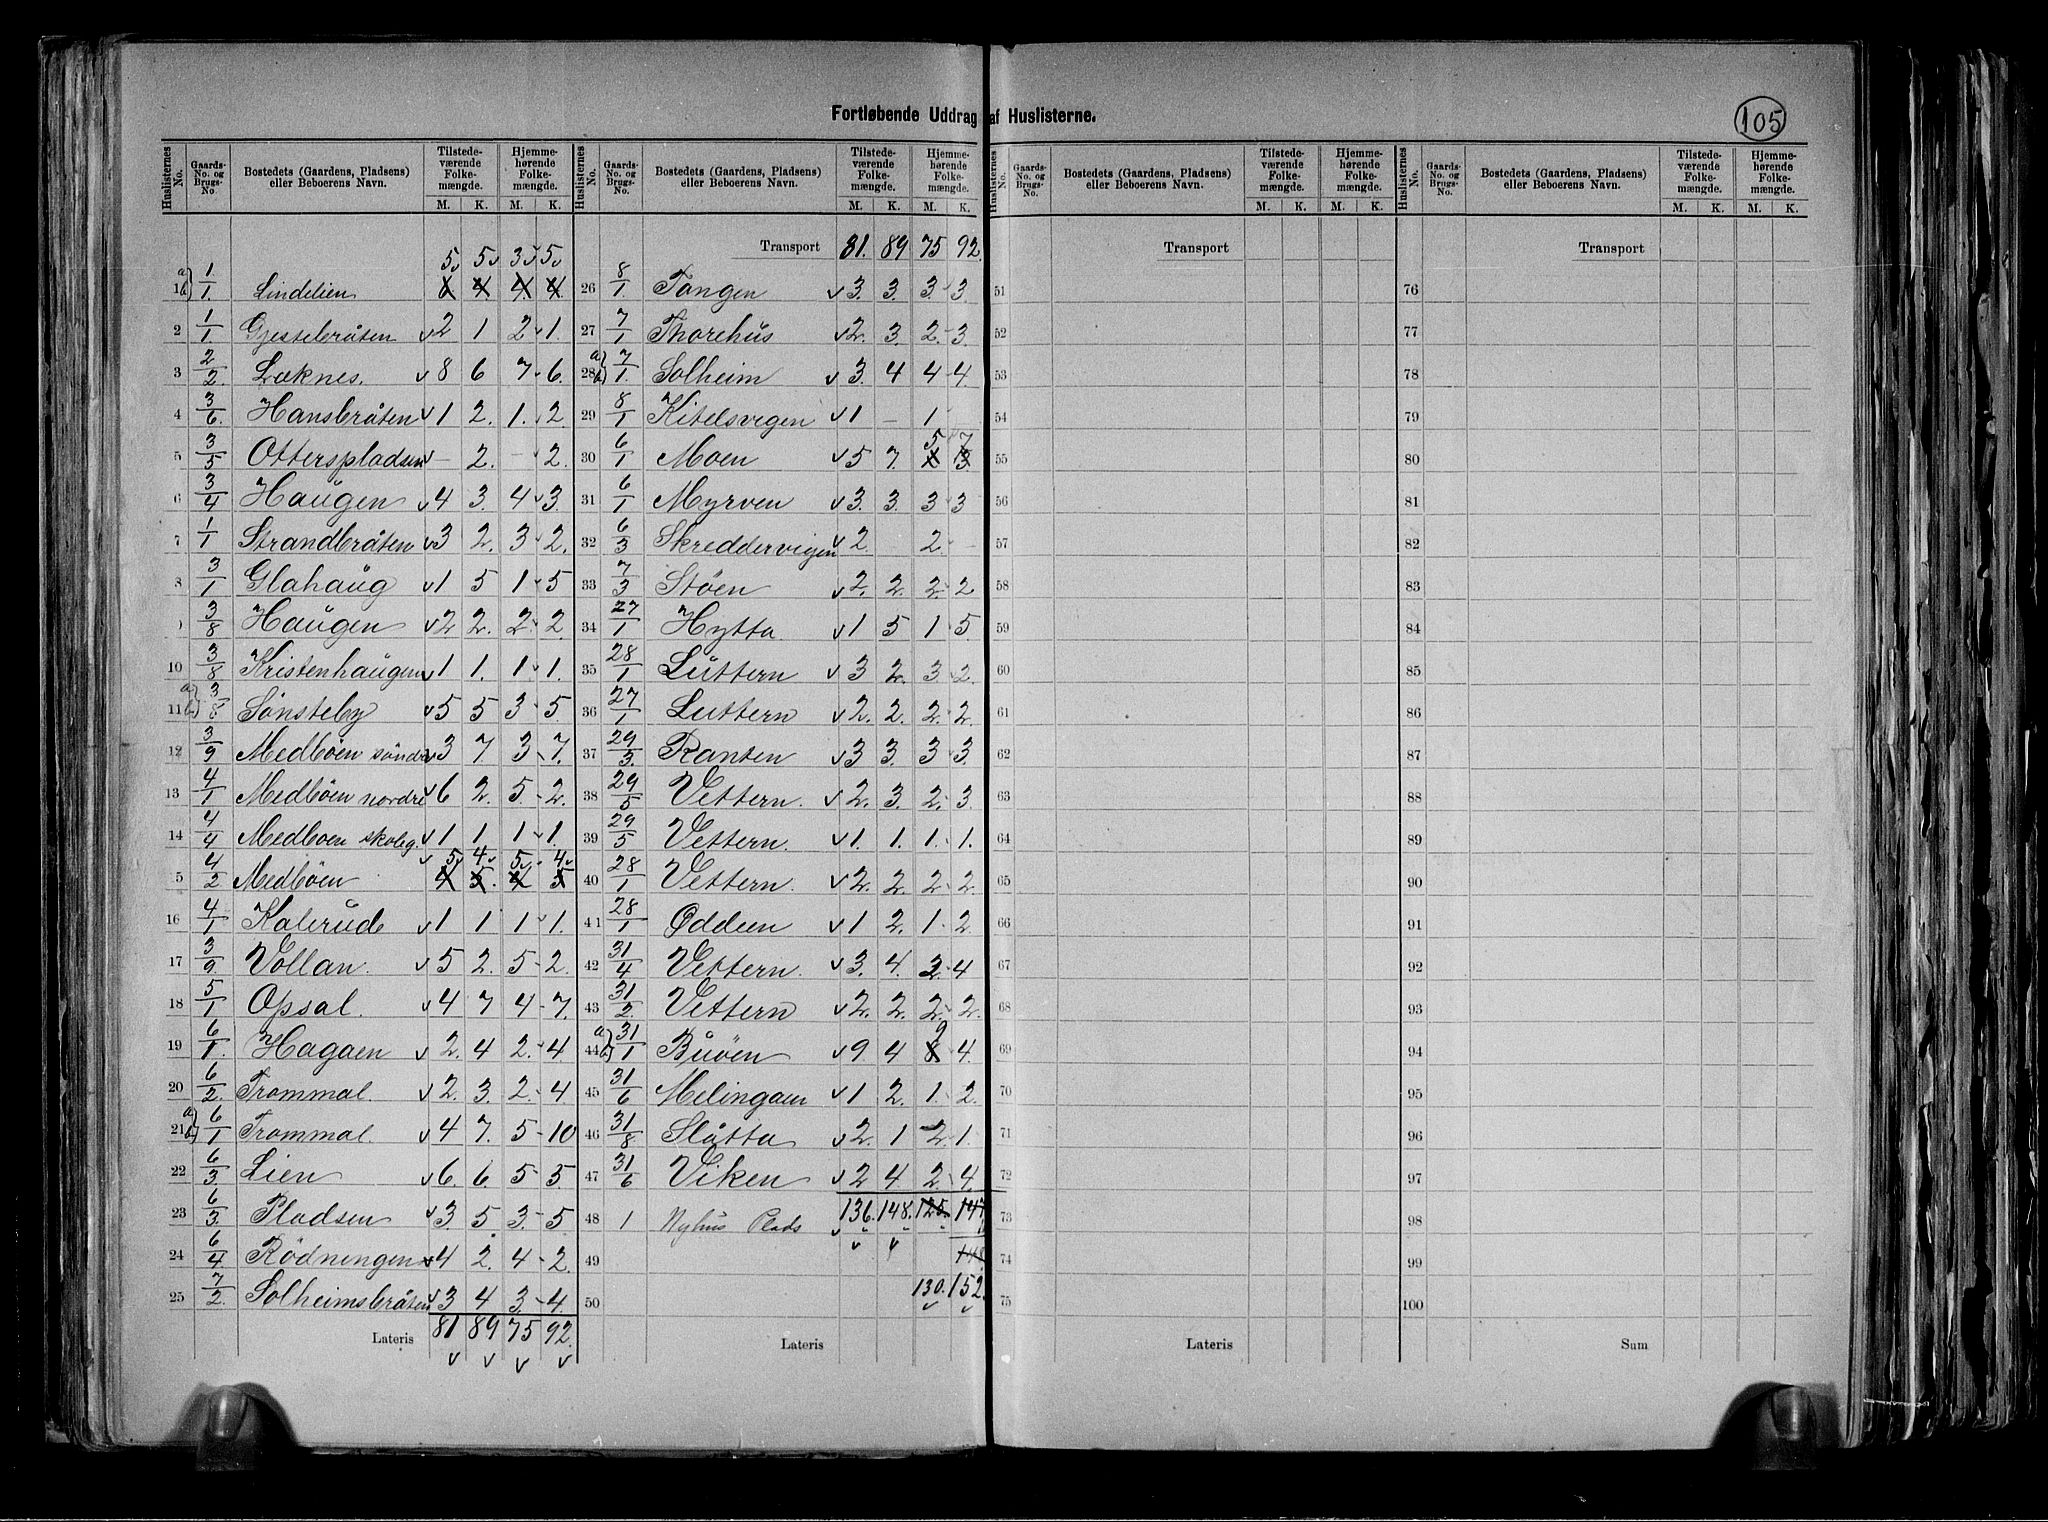 Fortløbende Uddrag af Huslisterne.
105
Huslisternes No. | Gaards-No. og Brugs-No. | Bostedets (Gaardens, Pladsens) eller Beboerens Navn. | Tilstedeværende Folkemængde. M. K. | Hjemmehørende Folkemængde. M. K.
5 5 3 5
1 a) b) 1/1. Lindelien 6 4 4. 4.
2 1/1 Gjestebråten 2 1 2 1.
3 2/2. Læknes. 8 6 7 6.
4 3/6. Hansbråten 1 2. 1. 2
5 3/5 Otterspladsen - 2. - 2.
6 3/4 Haugen 4 3. 4 3.
7 1/1 Strandbråten 3 2. 3 2.
8 3/1 Glahaug 1 5 1 5
9 3/8 Haugen 2 2. 2. 2.
10 3/8 Kristenhaugen 1 1. 1. 1.
11 a) b) 3/8 Sønsteby 5 5 3 5
12 3/9 Medbøen søndre 3 7 3 7.
13 4/1 Medbøen nordre 6 2. 5. 2.
14 4/4 Medbøen skoleg. 1 1. 1 1.
5 4 5 4
15 4/2 Medbøen 4 5. 4 5
16 4/1 Kalerud 1 1 1 1.
17 3/9. Vollan. 5 2. 5 2.
18 5/1 Opsal. 4 7 4 7.
19 6/1. Hagaen 2. 4 2. 4.
20 6/2. Trommal. 2. 3. 2. 4
21 a) b) 6/1 Trommal. 4 7. 5 10
22 6/3 Lien 6. 6. 5 5
23 6/3. Pladsen 3. 5 3. 5
24 6/4 Rödningen 4 2. 4 2.
25 7/2. Solheimsbråten 3 4 3. 4.
Lateris 81 89 75 92.
Transport 81. 89 75 92.
26 8/1 Tangen 3. 3. 3. 3.
27 7/1 Thorehus 2. 3. 2. 3.
28 a) b) 7/1. Solheim 3. 4 4 4.
29 8/1 Kitelsvigen 1 - 1
5 7
30 6/1 Moen 5 7. 3
31 6/1 Myrven 3. 3. 3 3
32 6/3 Skreddervigen 2. 2. -
33 7/3 Støen 2. 2. 2. 2
34 27/1 Hytta 1 5 1 5.
35 28/1 Luttern 3 2. 3. 2.
36 27/1 Luttern 2. 2. 2. 2
37 29/3. Ranten 3 3. 3 3.
38 29/5 Vettern. 2. 3. 2. 3.
39 29/5 Vettern. 1. 1. 1. 1.
40 28/1 Vettern. 2. 2. 2. 2.
41 28/1 Oddeen 1 2. 1. 2.
42 31/4 Vettern. 3. 4. 3. 4
43 31/2. Vettern 2. 2. 2. 2.
9
44 a) b) 31/1 Buøen 9 4 8 4.
45 31/6 Melingaen 1 2. 1. 2.
46 31/8 Slåtta 2. 1 2. 1.
47 31/6 Viken 2 4. 2. 4.
48 1 Nyhus Plads 136. 148. 125. 147
49 148
50 130. 152.
Lateris
Huslisternes No. | Gaards-No. og Brugs-No. | Bostedets (Gaardens, Pladsens) eller Beboerens Navn. | Tilstedeværende Folkemængde. M. K. | Hjemmehørende Folkemængde. M. K.
Transport
51
52
53
54
55
56
57
58
59
60
61
62
63
64
65
66
67
68
69
70
71
72
73
74
75
Lateris
Transport
76
77
78
79
80
81
82
83
84
85
86
87
88
89
90
91
92
93
94
95
96
97
98
99
100
Sum